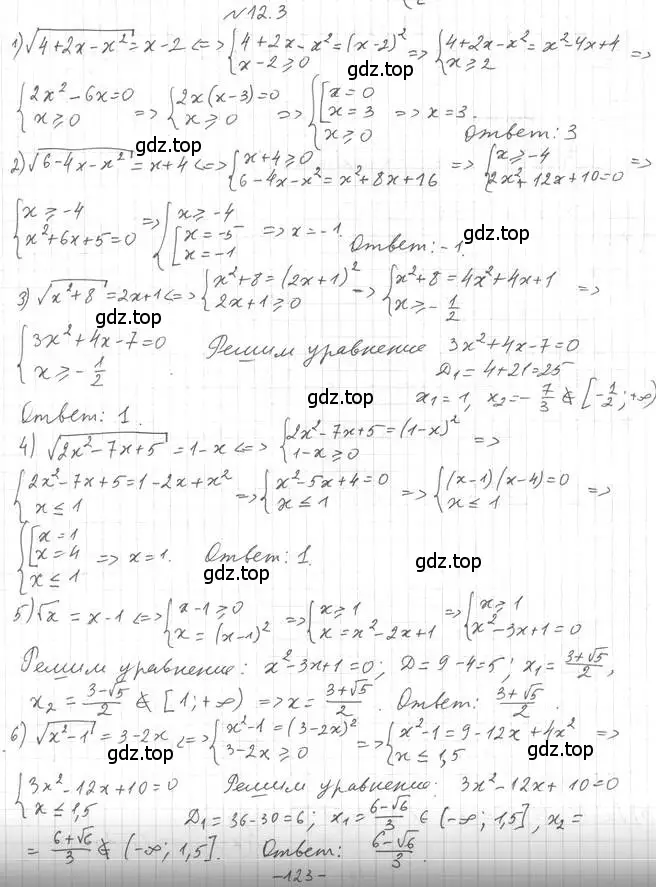 №12.3
1) √(4+2x-x²) = x-2 <=> { 4+2x-x² = (x-2)² ; x-2⩾0 => { 4+2x-x² = x²-4x+4 ; x⩾2 =>
gdz.top
{ 2x²-6x=0 ; x⩾0 => { 2x(x-3)=0 ; x⩾0 => { [ x=0 ; x=3 ; x⩾0 => x=3.
gdz.top
Ответ: 3
2) √(6-4x-x²) = x+4 <=> { x+4⩾0 ; 6-4x-x² = x²+8x+16 => { x⩾-4 ; 2x²+12x+10=0 =>
gdz.top
{ x⩾-4 ; x²+6x+5=0 => { x⩾-4 ; [ x=-5 ; x=-1 => x=-1. Ответ: -1.
gdz.top
3) √(x²+8) = 2x+1 <=> { x²+8 = (2x+1)² ; 2x+1⩾0 => { x²+8 = 4x²+4x+1 ; x⩾-1/2 =>
gdz.top
{ 3x²+4x-7=0 ; x⩾-1/2 Решим уравнение 3x²+4x-7=0
D₁=4+21=25
gdz.top
x₁=1, x₂=-7/3 ∉ [-1/2; +∞)
Ответ: 1.
4) √(2x²-7x+5) = 1-x <=> { 2x²-7x+5 = (1-x)² ; 1-x⩾0 =>
gdz.top
{ 2x²-7x+5 = 1-2x+x² ; x⩽1 => { x²-5x+4=0 ; x⩽1 => { (x-1)(x-4)=0 ; x⩽1 =>
{ [ x=1 ; x=4 ; x⩽1 => x=1. Ответ: 1.
gdz.top
gdz.top
5) √x = x-1 <=> { x-1⩾0 ; x=(x-1)² => { x⩾1 ; x=x²-2x+1 => { x⩾1 ; x²-3x+1=0
gdz.top
Решим уравнение: x²-3x+1=0; D=9-4=5; x₁=(3+√5)/2,
x₂=(3-√5)/2 ∉ [1; +∞) => x=(3+√5)/2. Ответ: (3+√5)/2.
gdz.top
6) √(x²-1) = 3-2x <=> { x²-1 = (3-2x)² ; 3-2x⩾0 => { x²-1 = 9-12x+4x² ; x⩽1,5 =>
gdz.top
{ 3x²-12x+10=0 ; x⩽1,5 Решим уравнение: 3x²-12x+10=0
D₁=36-30=6; x₁=(6-√6)/3 ∈ (-∞; 1,5], x₂=
=(6+√6)/3 ∉ (-∞; 1,5]. Ответ: (6-√6)/3.
gdz.top
-123-